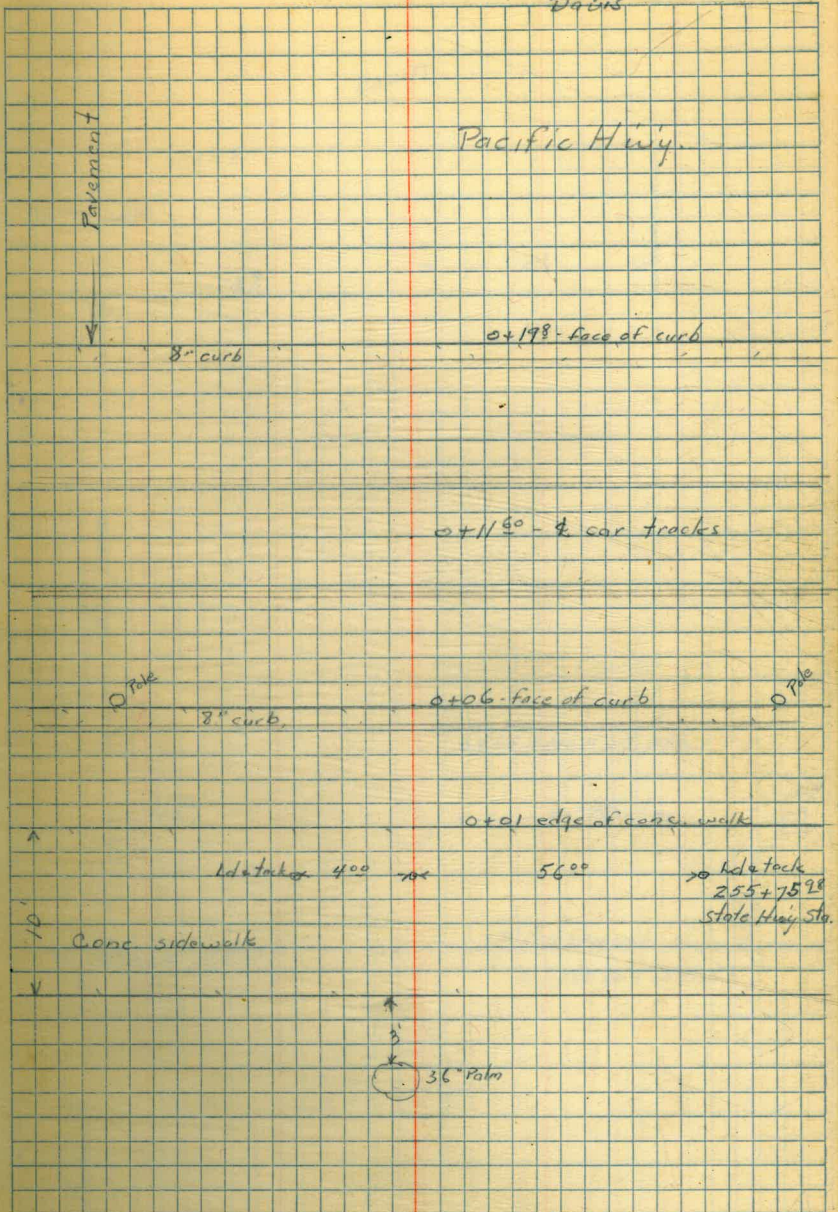 Davis
Pacific Hwy.
Pavement
0+19⁸ - face of curb
8" curb
0+11⁶⁰ - ℄ car tracks
Pole
0+06 - face of curb
Pole
8" curb
0+01 edge of conc. walk
Ld & tack 4⁰⁰ 56⁰⁰ Ld & tack
255+75⁹⁸
State Hwy Sta.
10'
Conc. sidewalk
3'
36" Palm